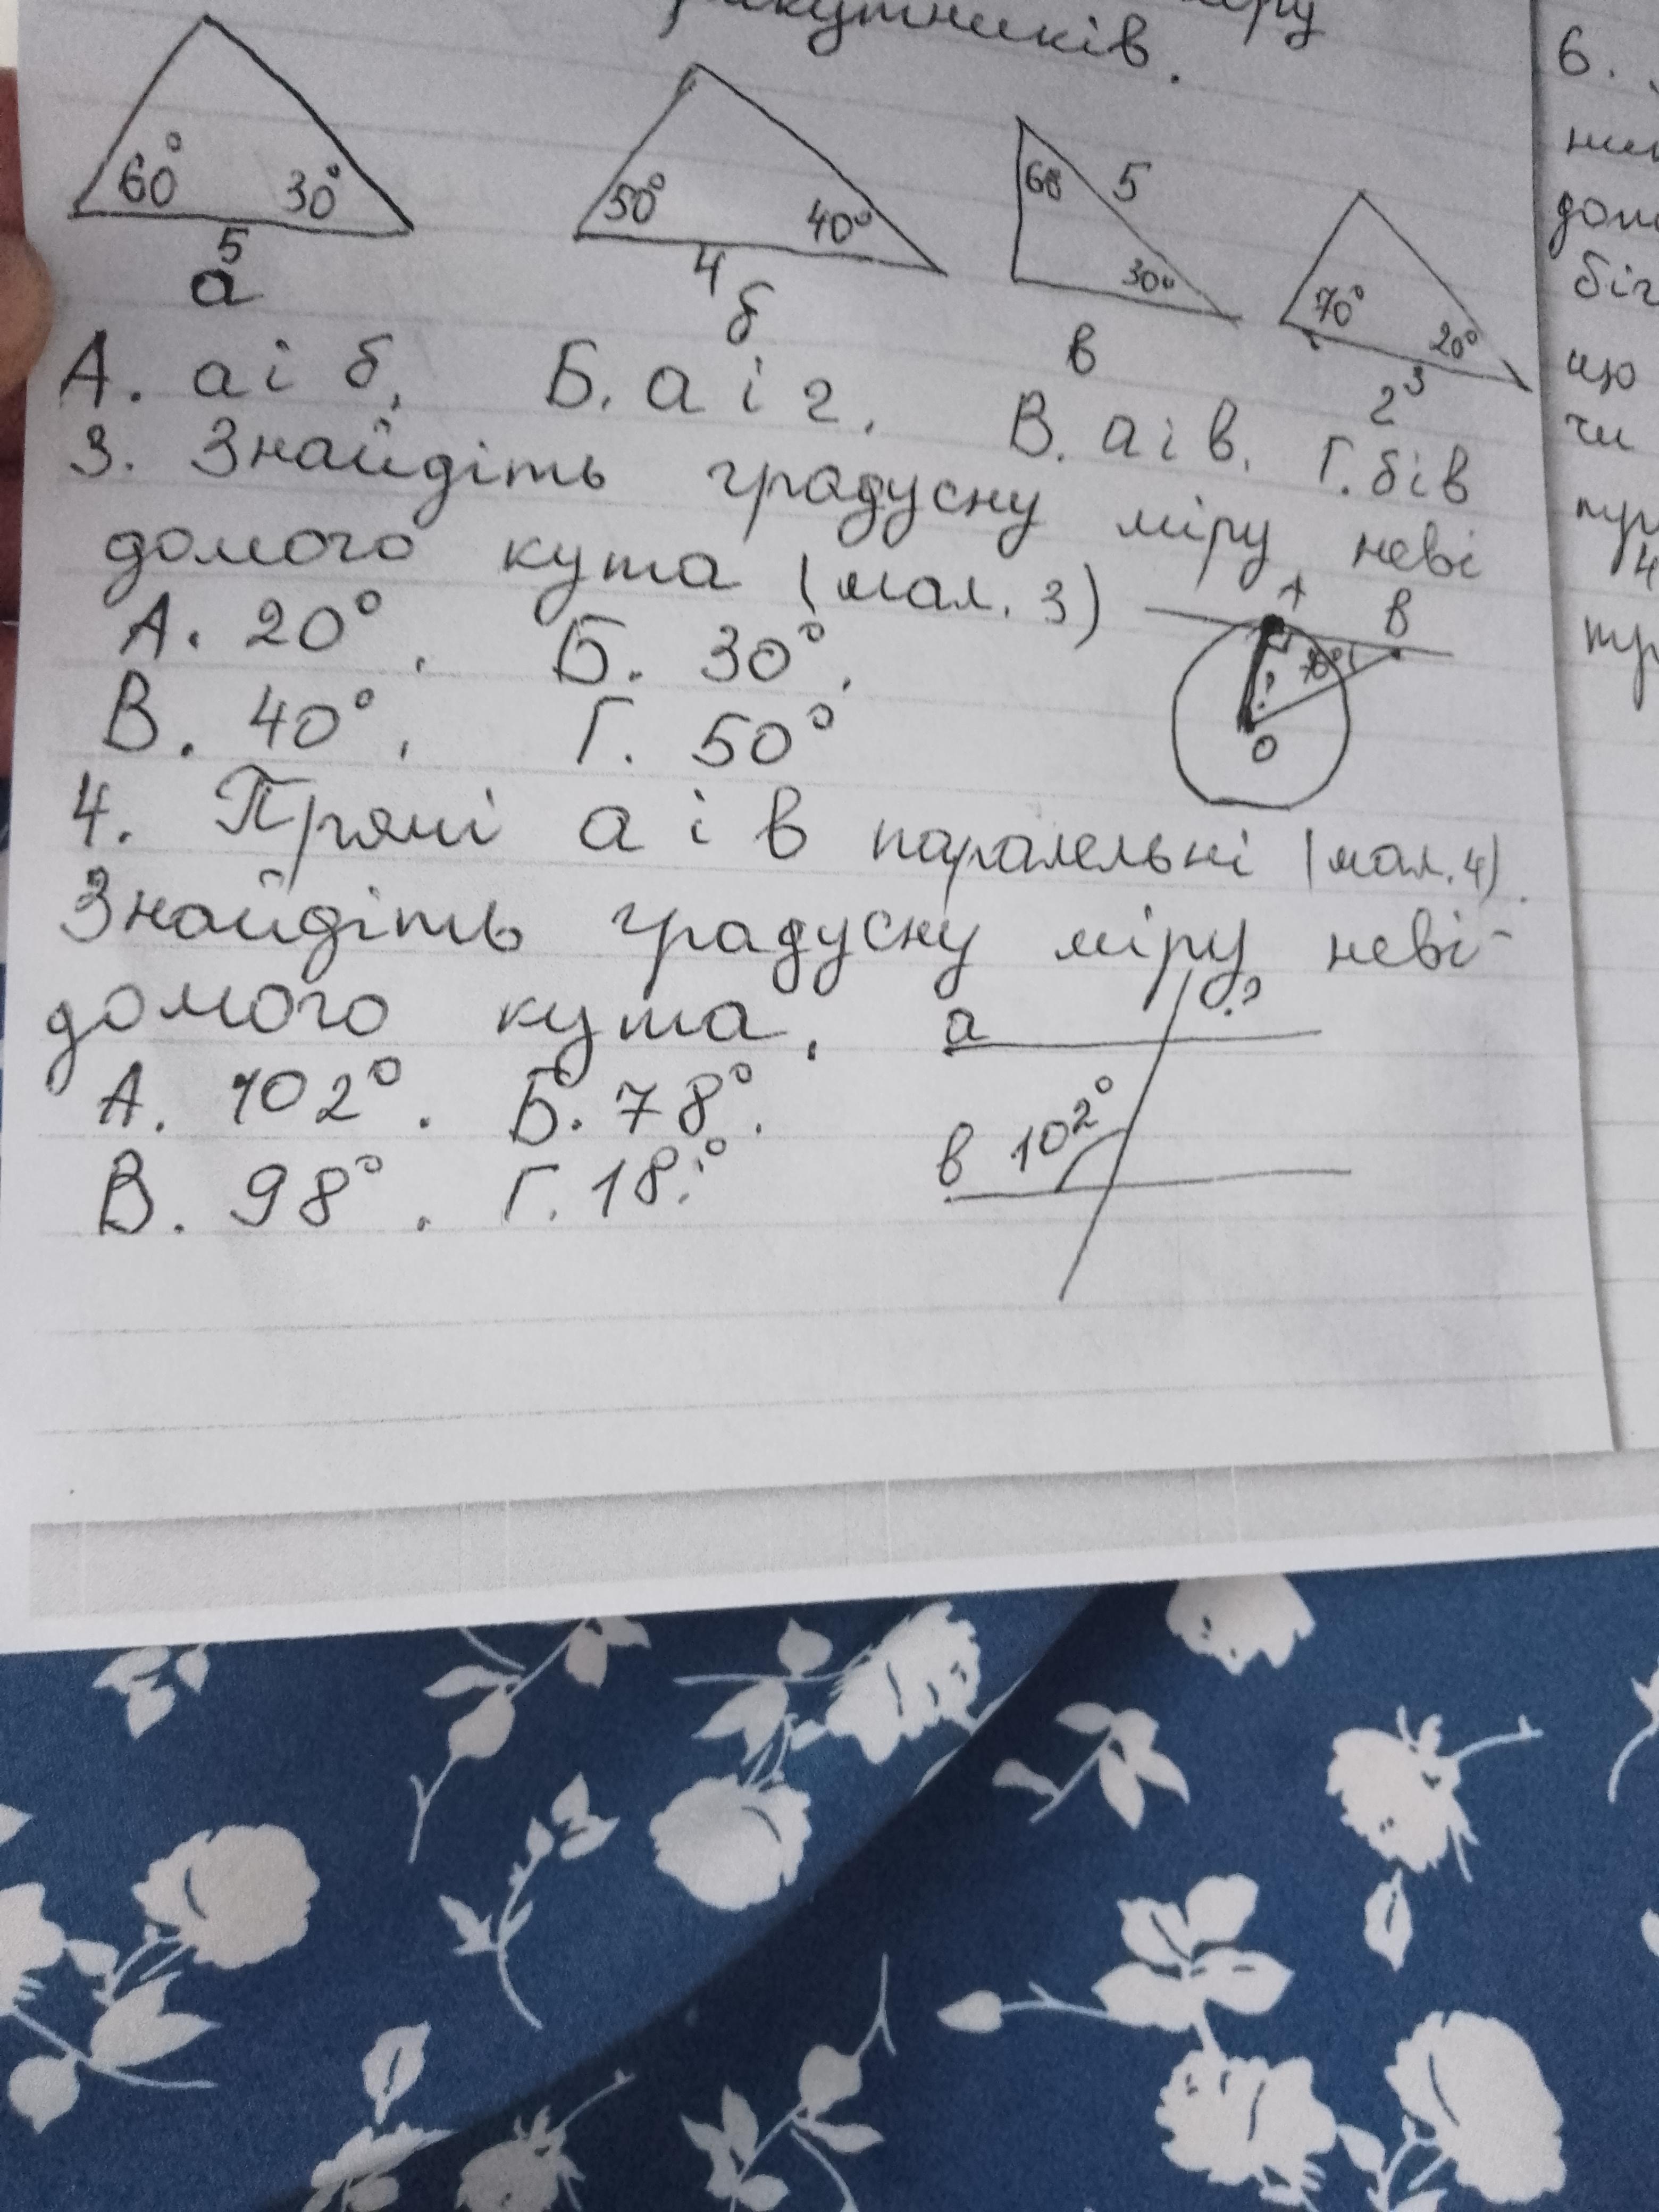 трикутників.
60° 30° 5 а
50° 40° 4 б
60 5 30° в
70° 20° 3 г
А. а і б. Б. а і г. В. а і в. Г. б і в
3. Знайдіть градусну міру неві
домого кута (мал. 3)
А В
?
О
А. 20°. Б. 30°.
В. 40°. Г. 50°
4. Прямі а і в паралельні (мал. 4).
Знайдіть градусну міру неві-
домого кута.
а ?
в 102°
А. 102°. Б. 78°.
В. 98°. Г. 18°.
6.
що
чи